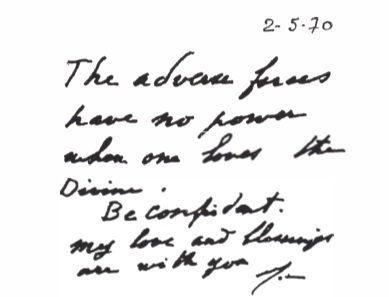 2-5-70
The adverse forces
have no power
when one loves the
Divine.
Be confident.
my love and blessings
are with you